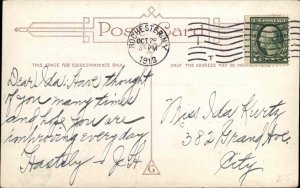 Post Card
ROCHESTER, N.Y.
OCT 26
5-PM
1913
THIS SPACE FOR CORRESPONDENCE
THIS SPACE IS FOR ADDRESS ONLY
Dear Ida: Have thought
of you many times
and hope you are
improving every day
Hastily - J.H.
Miss Ida Kurtz
382 Grand Ave.
City
G